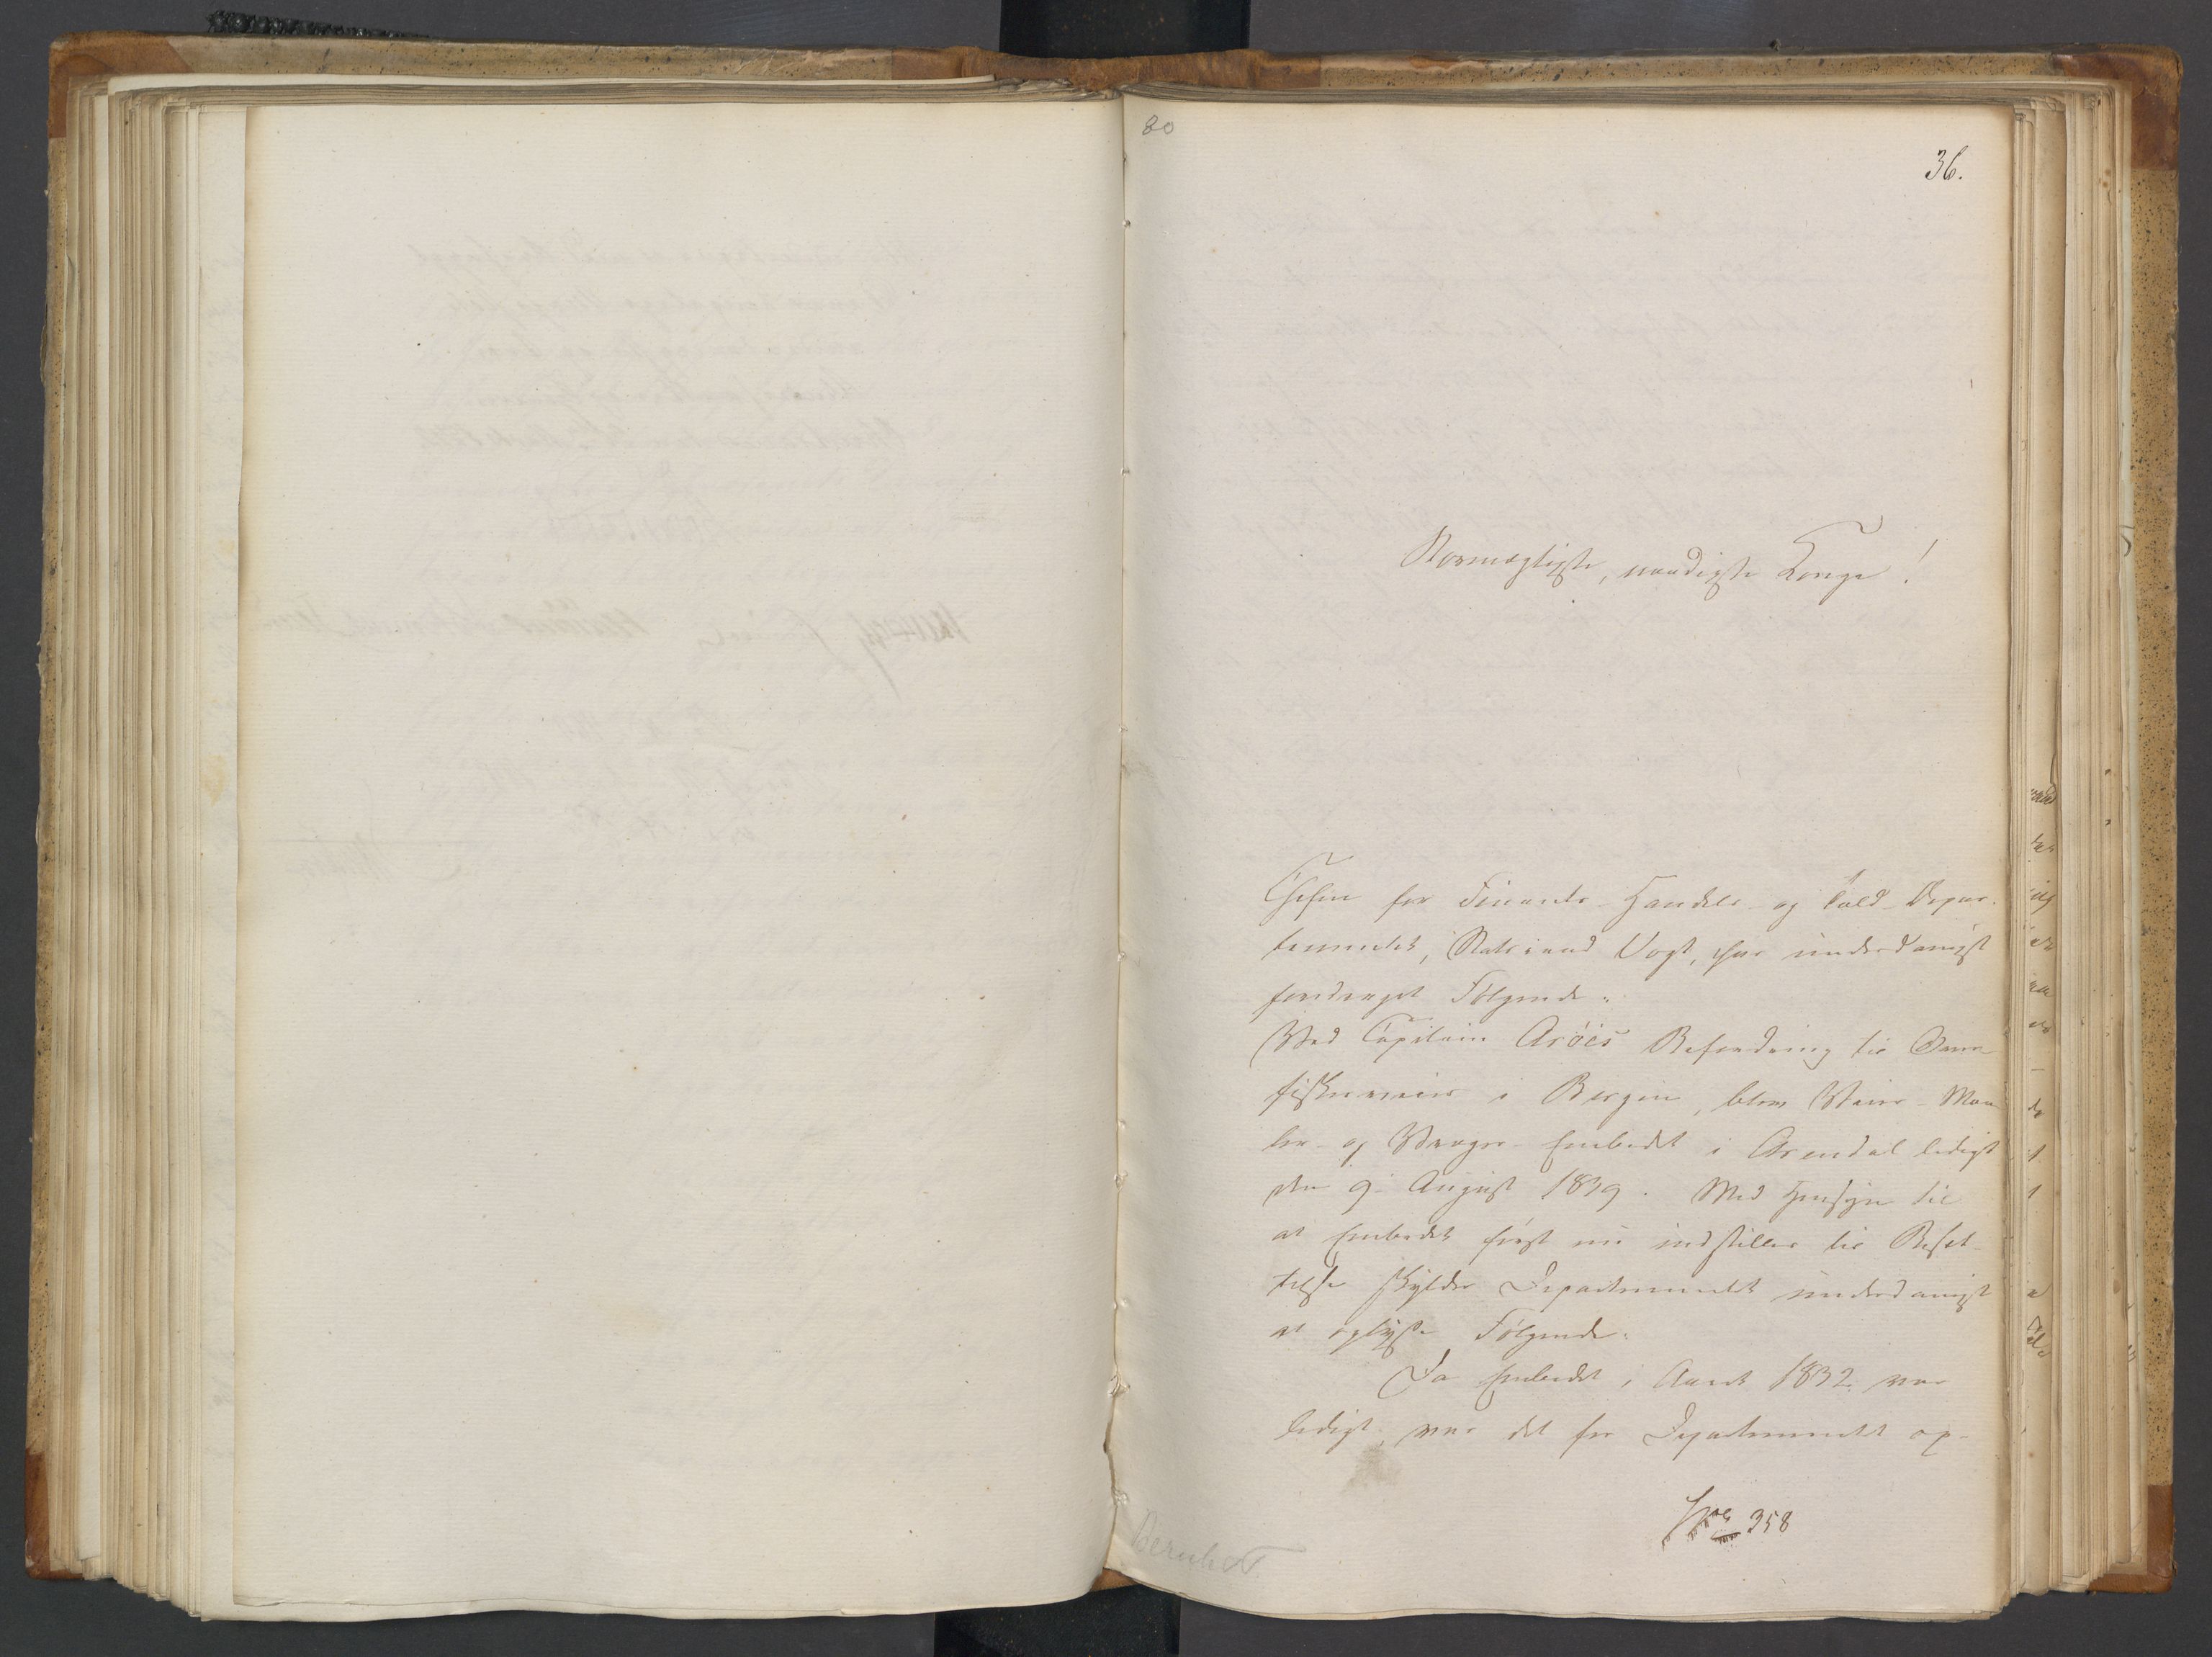 80
36.
Stormægtigste, naadigste Konge!
Chefen for Finants- Handels- og Told-Depar-
tementet, Statsraad Vogt, har underdanigst
foredraget Følgende:
Ved Capitain Aröes Befordring til
i Bergen, blev Veier- Maa-
ler- og Vrager-Embedet i Arendal ledigt
den 9 August 1839. Med Hensyn til
at Embedet først nu indstilles til Besæt-
telse skylder Departementet underdanigst
at oplyse Følgende:
Da Embedet i Aaret 1832 var
ledigt, var det for Departementet op-
358